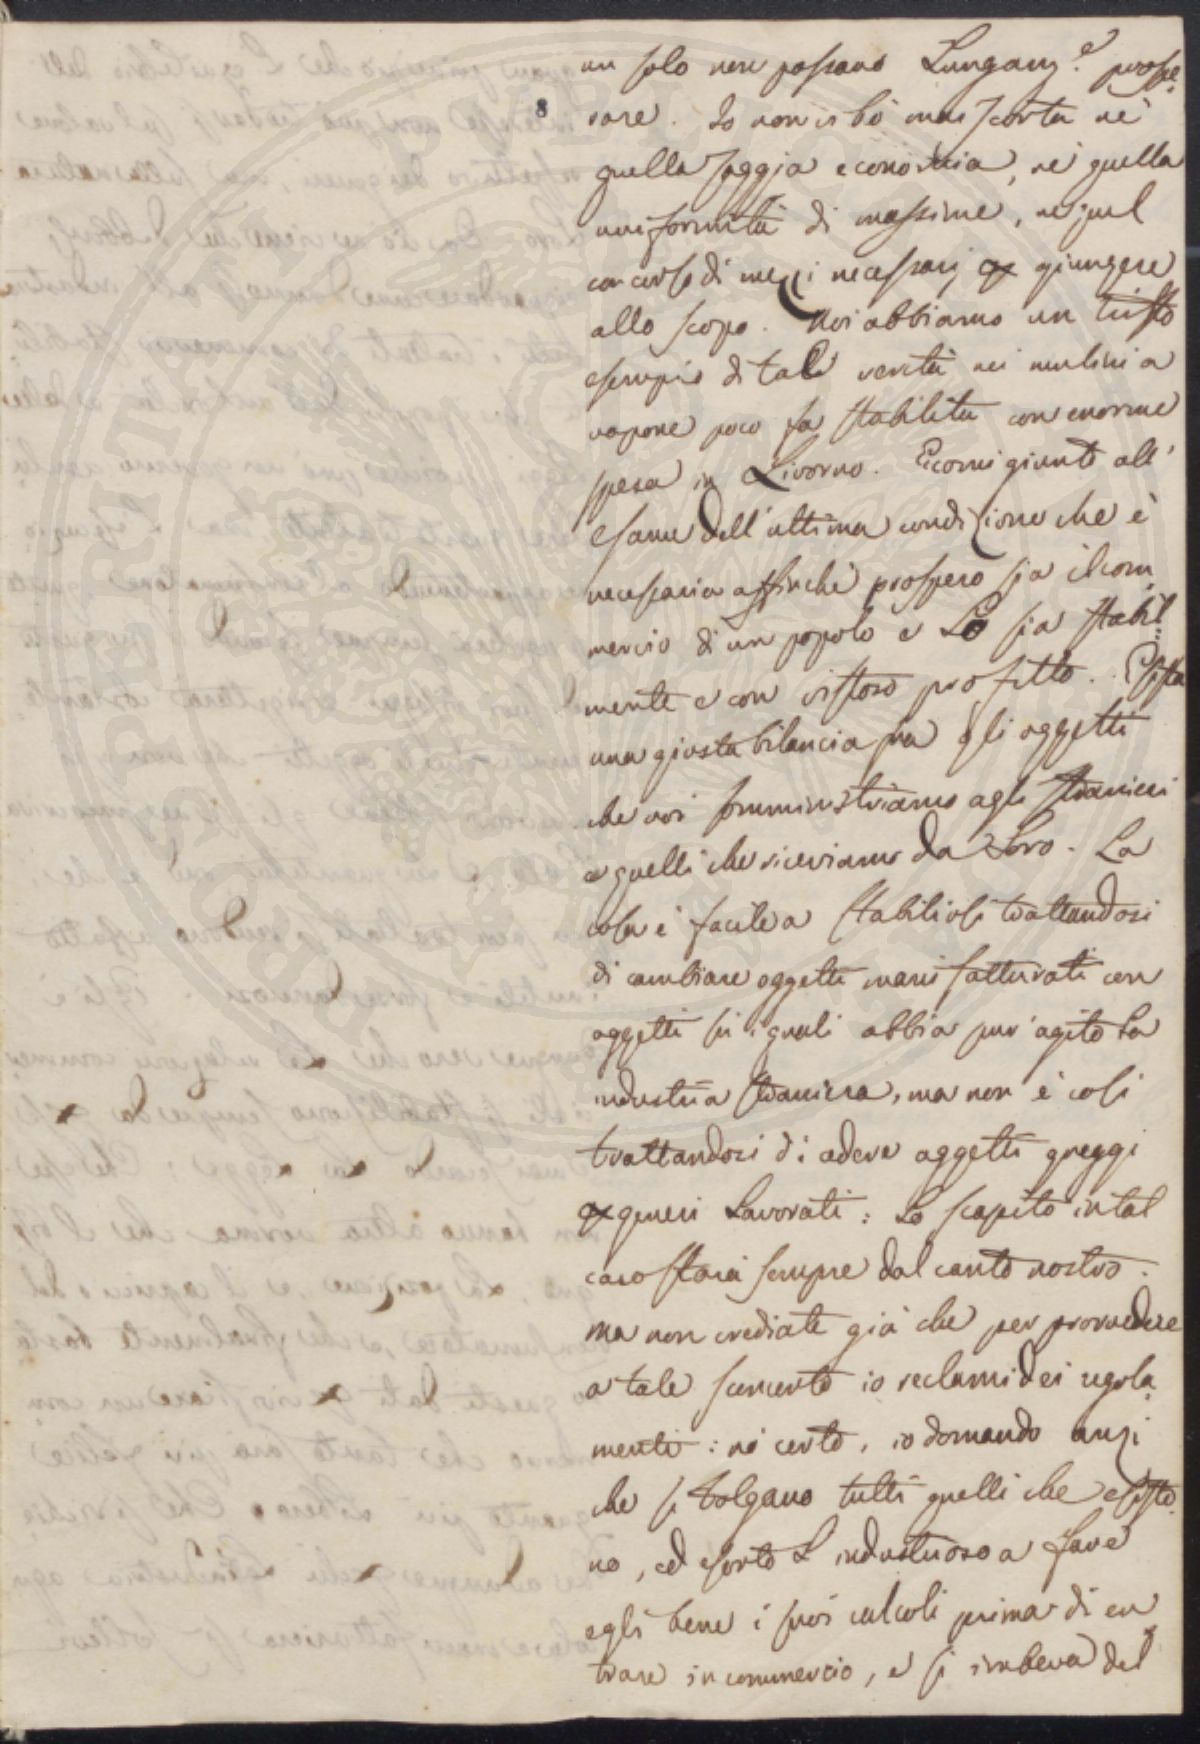 un solo non possano Lungam.e prospe=
8
rare. Io non ci hò mai scorta nè
quella saggia economia, nè quella
uniformità di massime, nè quel
concorso di mezzi necessarj p giungere
allo scopo. Noi abbiamo un tristo
esempio di tale verità nei mulini a
vapore poco fa stabiliti con enorme
spesa in Livorno. Eccomi giunto all'
esame dell'ultima condizione che è
necessaria affinchè prospero sia il com=
mercio di un popolo e Lo sia stabil=
mente e con vistoso profitto. Esista
una giusta bilancia fra gli oggetti
che noi somministriamo agli stranieri
e quelli che riceviamo da Loro. La
cosa è facile a stabilirsi trattandosi
di cambiare oggetti manifatturati con
oggetti su i quali abbia pur'agito La
industria straniera, ma non è così
trattandosi di adere oggetti greggi
p generi Lavorati: Lo scapito in tal
caso starà sempre dal canto nostro.
ma non crediate già che per provvedere
a tale sconcerto io reclami dei regola=
menti: nò certo, io domando anzi
che si tolgano tutti quelli che esisto=
no, ed esorto L'industrioso a fare
egli bene i suoi calcoli prima di en
trare in commercio, e si imbeva del